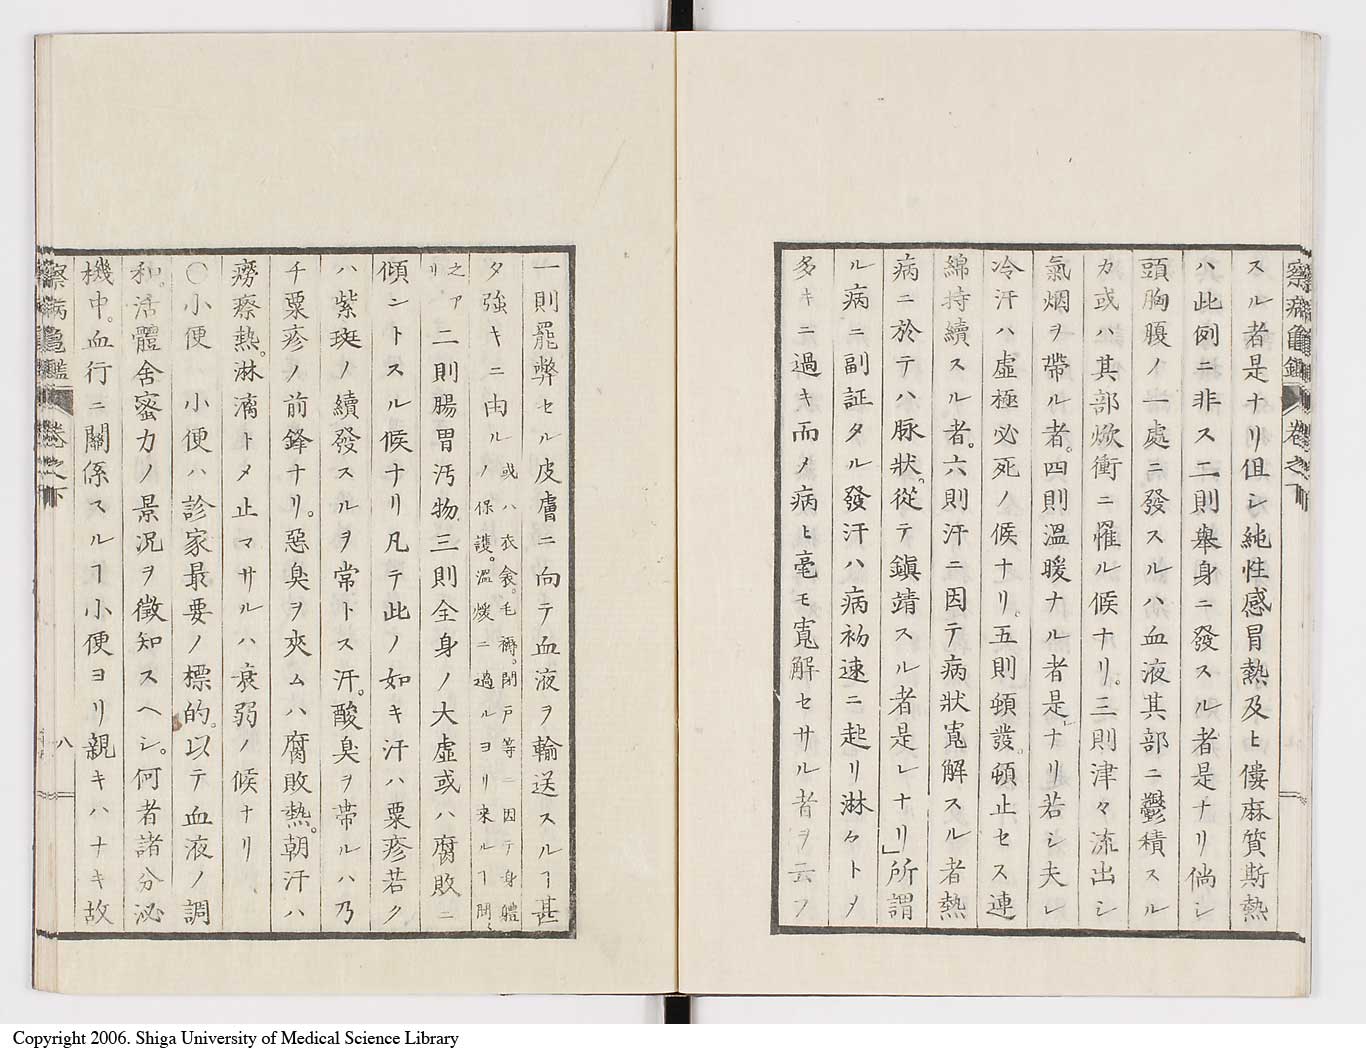 察病亀鑑 卷之下
スル者是ナリ但シ純性感冒熱及ヒ僂麻質斯熱
ハ此例ニ非ス二則舉身ニ發スル者是ナリ倘シ
頭胸腹ノ一處ニ發スルハ血液其部ニ鬱積スル
カ或ハ其部焮衝ニ罹ル候ナリ。三則津々流出シ
氣烟ヲ帶ル者。四則溫暖ナル者是」ナリ若シ夫レ
冷汗ハ虛極必死ノ候ナリ。五則頓發。頓止セス連
綿持續スル者。六則汗ニ因テ病狀寬解スル者熱
病ニ於テハ脉狀。從テ鎭靖スル者是レナリ」所謂
ル病ニ副証タル發汗ハ病初速ニ起リ淋々トメ
多キニ過キ而メ病ヒ毫モ寬解セサル者ヲ云フ
一則罷弊セル皮膚ニ向テ血液ヲ輸送スルヿ甚
タ強キニ由ル
或ハ衣衾。毛褥。閉戸等ニ因テ身體
ノ保護。溫煖ニ過ルヨリ来ルヿ間〻
之アリ
二則腸胃汚物三則全身ノ大虛或ハ腐敗ニ
傾ントスル候ナリ凡テ此ノ如キ汗ハ粟疹若ク
ハ紫斑ノ續發スルヲ常トス汗。酸臭ヲ帶ルハ乃
チ粟疹ノ前鋒ナリ。惡臭ヲ夾ムハ腐敗熱。朝汗ハ
癆瘵熱。淋漓トメ止マサルハ衰弱ノ候ナリ
〇小便 小便ハ診家最要ノ標的。以テ血液ノ調
和。活體舍蜜力ノ景況ヲ徵知スヘシ。何者諸分泌
機中。血行ニ關係スルヿ小便ヨリ親キハナキ故
察病亀鑑 卷之下
八
Copyright 2006. Shiga University of Medical Science Library